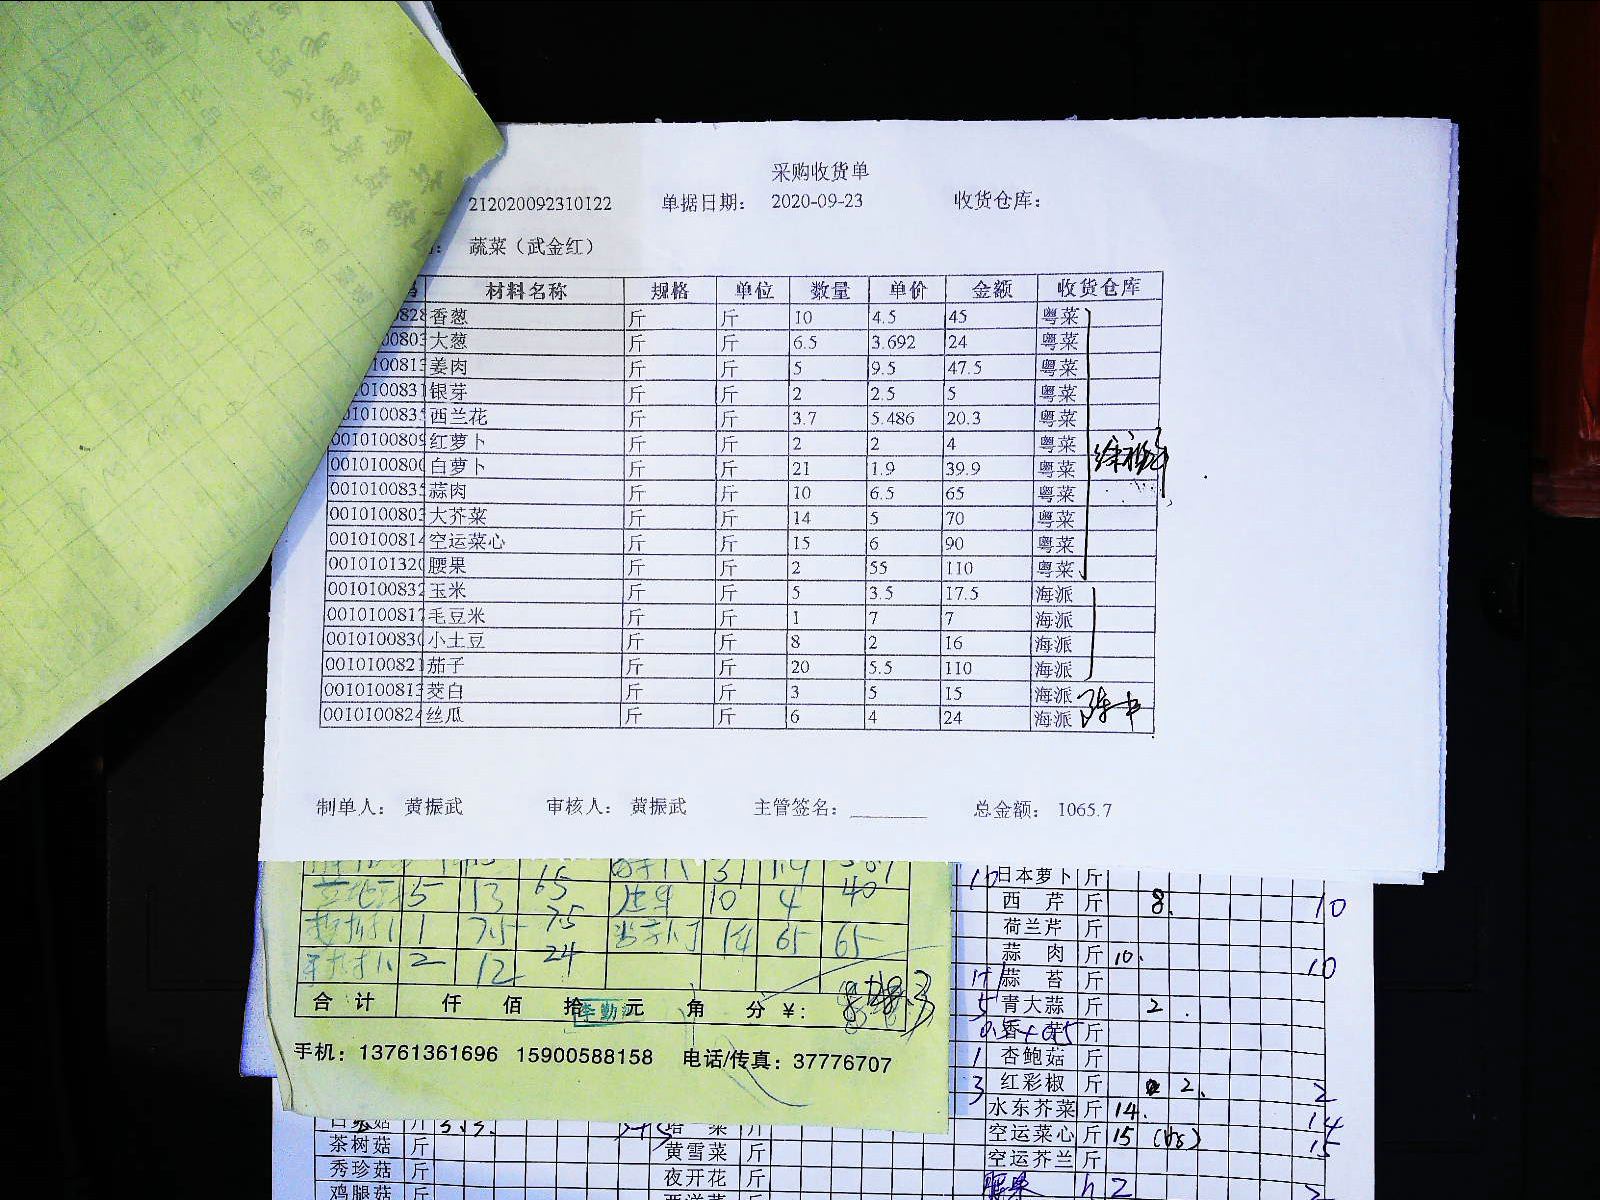 采购收货单
212020092310122 单据日期： 2020-09-23 收货仓库：
蔬菜（武金红）
材料名称 规格 单位 数量 单价 金额 收货仓库
香葱 斤 斤 10 4.5 45 粤菜
00803 大葱 斤 斤 6.5 3.692 24 粤菜
100813 姜肉 斤 斤 5 9.5 47.5 粤菜
银芽 斤 斤 2 2.5 5 粤菜
西兰花 斤 斤 3.7 5.486 20.3 粤菜
0010100809 红萝卜 斤 斤 2 2 4 粤菜
0010100800 白萝卜 斤 斤 21 1.9 39.9 粤菜
0010100835 蒜肉 斤 斤 10 6.5 65 粤菜
0010100803 大芥菜 斤 斤 14 5 70 粤菜
0010100814 空运菜心 斤 斤 15 6 90 粤菜
0010101320 腰果 斤 斤 2 55 110 粤菜
0010100832 玉米 斤 斤 5 3.5 17.5 海派
0010100817 毛豆米 斤 斤 1 7 7 海派
0010100830 小土豆 斤 斤 8 2 16 海派
0010100821 茄子 斤 斤 20 5.5 110 海派
0010100813 茭白 斤 斤 3 5 15 海派
0010100824 丝瓜 斤 斤 6 4 24 海派
制单人： 黄振武 审核人： 黄振武 主管签名： 总金额： 1065.7
5 13 65 10 4 40
1 7.5 7.5 14 65 65
2 12 24
合计 仟 佰 拾 元 角 分 ￥：
手机：13761361696 15900588158 电话/传真：37776707
日本萝卜 斤
西芹 斤 8. 10
荷兰芹 斤
蒜肉 斤 10. 10
蒜苔 斤
5 青大蒜 斤 2
斤
1 杏鲍菇 斤
3 红彩椒 斤 2. 2
水东芥菜 斤 14. 14
空运菜心 斤 15 15
空运芥兰 斤
腰果 2
茶树菇 斤 黄雪菜 斤
秀珍菇 斤 夜开花 斤
鸡腿菇 斤